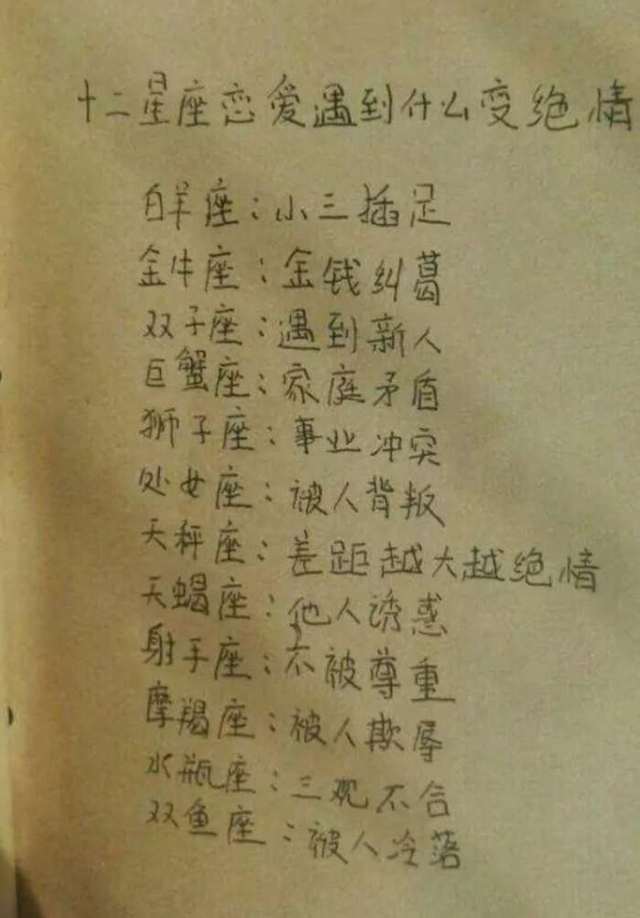 十二星座恋爱遇到什么变绝情
白羊座:小三插足
金牛座:金钱纠葛
双子座:遇到新人
巨蟹座:家庭矛盾
狮子座:事业冲突
处女座:被人背叛
天秤座:差距越大越绝情
天蝎座:他人诱惑
射手座:不被尊重
摩羯座:被人欺辱
水瓶座:三观不合
双鱼座:被人冷落